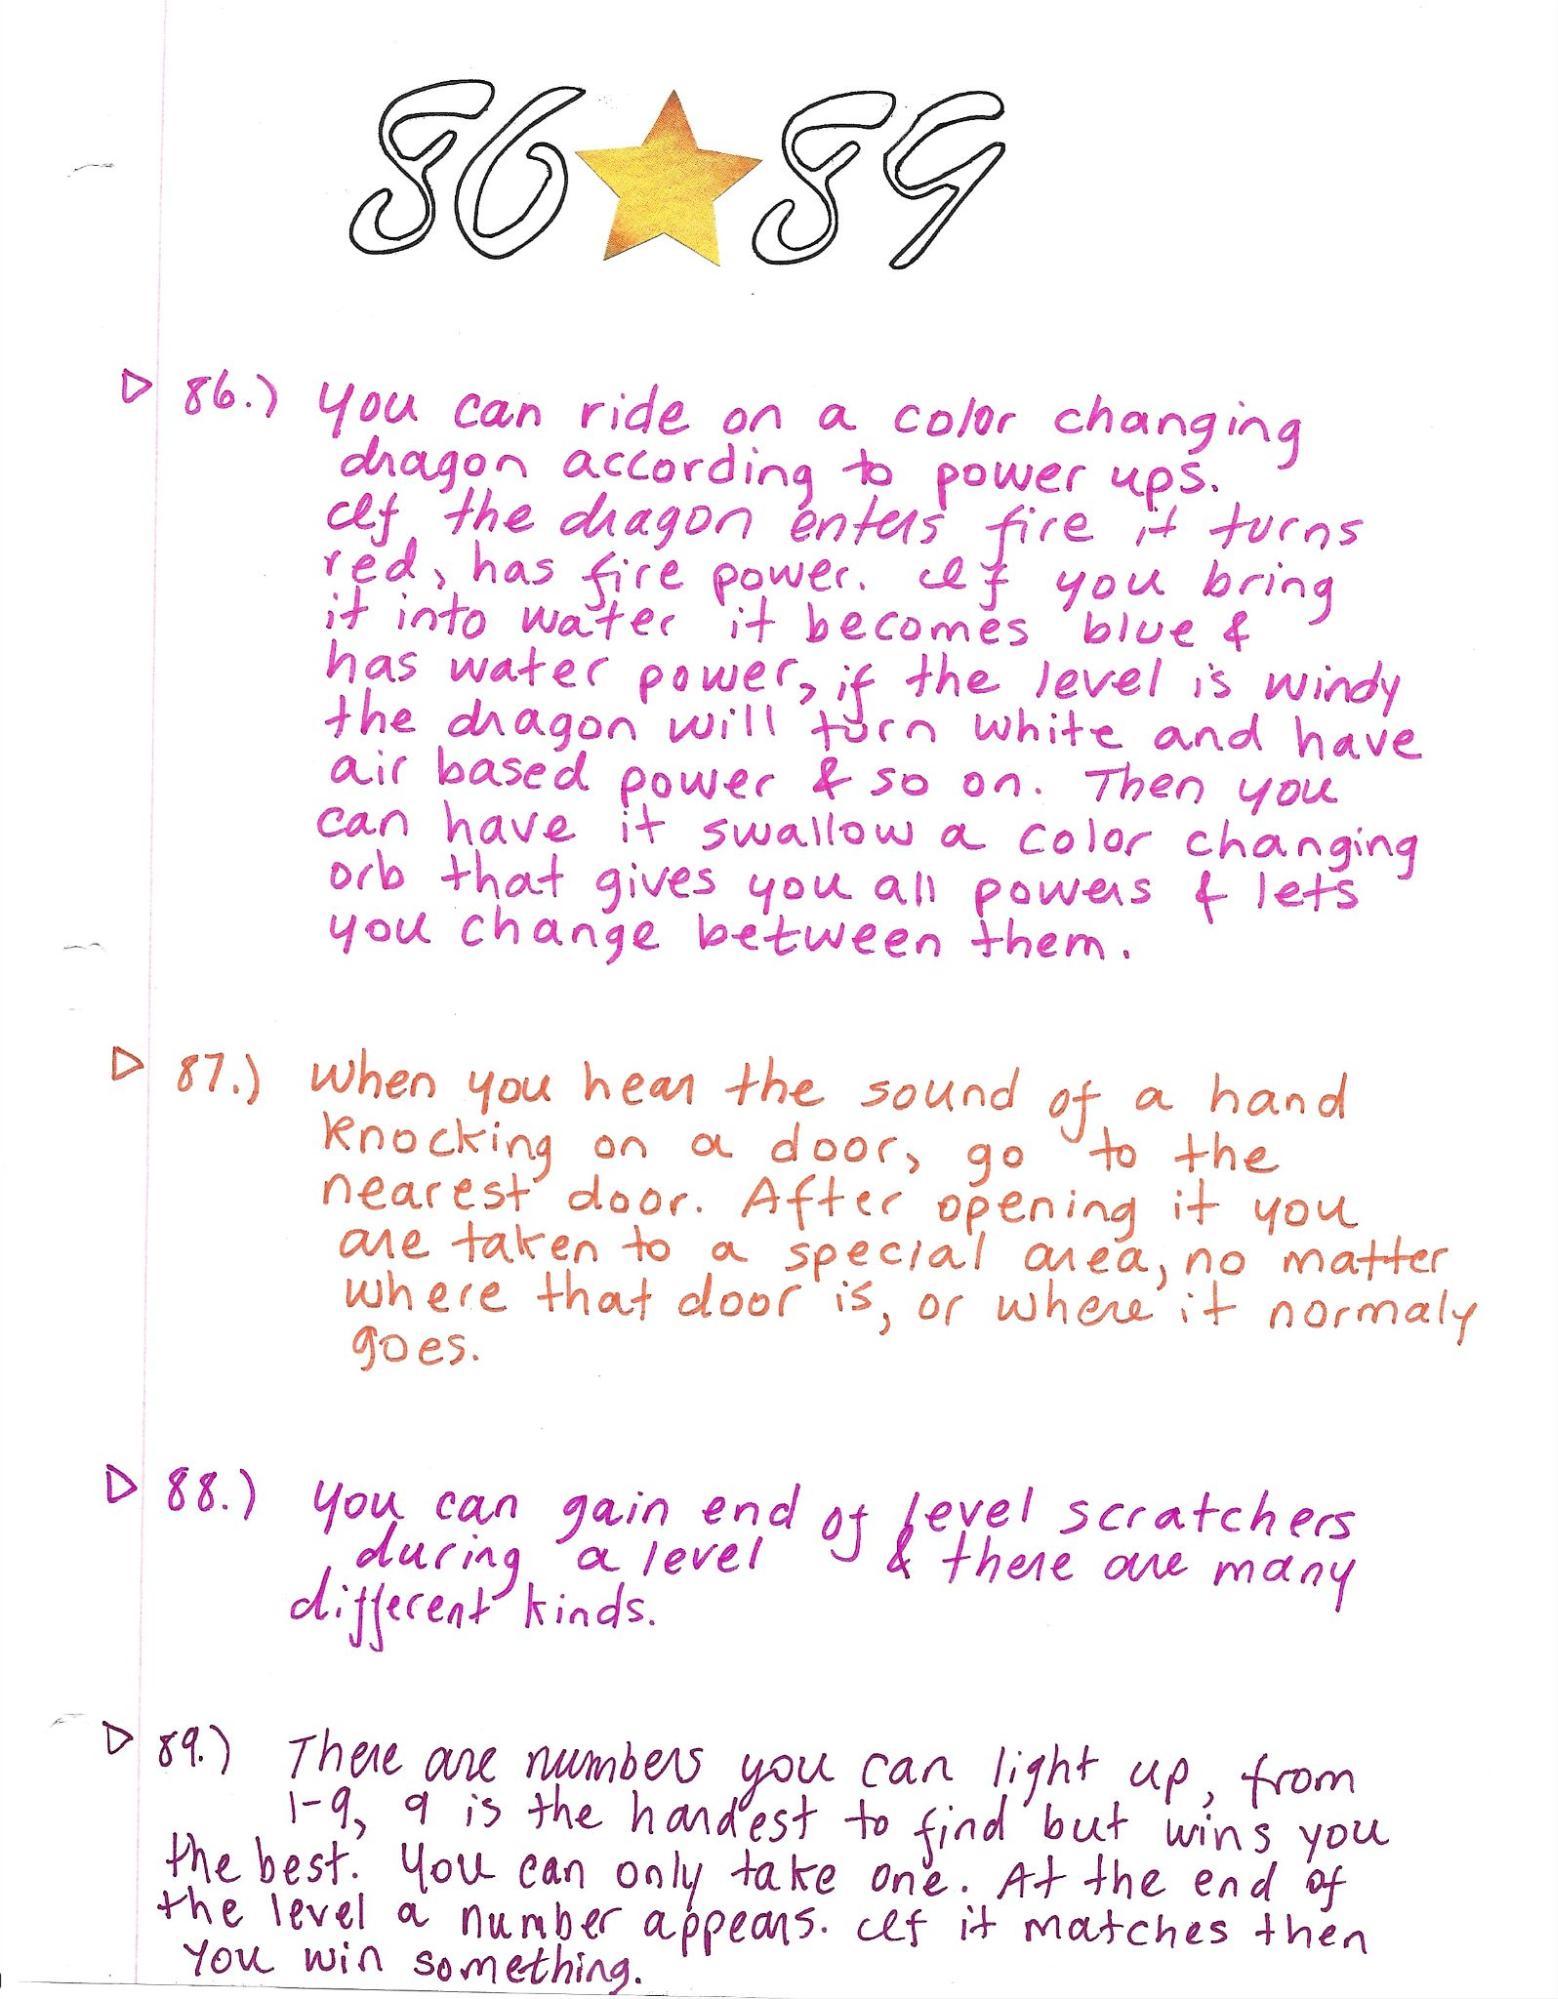 86 89
86.) You can ride on a color changing
dragon according to power ups.
If the dragon enters fire it turns
red, has fire power. If you bring
it into water it becomes blue &
has water power, if the level is windy
the dragon will turn white and have
air based power & so on. Then you
can have it swallow a color changing
orb that gives you all powers & lets
you change between them.
87.) When you hear the sound of a hand
knocking on a door, go to the
nearest door. After opening it you
are taken to a special area, no matter
where that door is, or where it normaly
goes.
88.) You can gain end of level scratchers
during a level & there are many
different kinds.
89.) There are numbers you can light up, from
1-9, 9 is the hardest to find but wins you
the best. You can only take one. At the end of
the level a number appears. If it matches then
You win something.